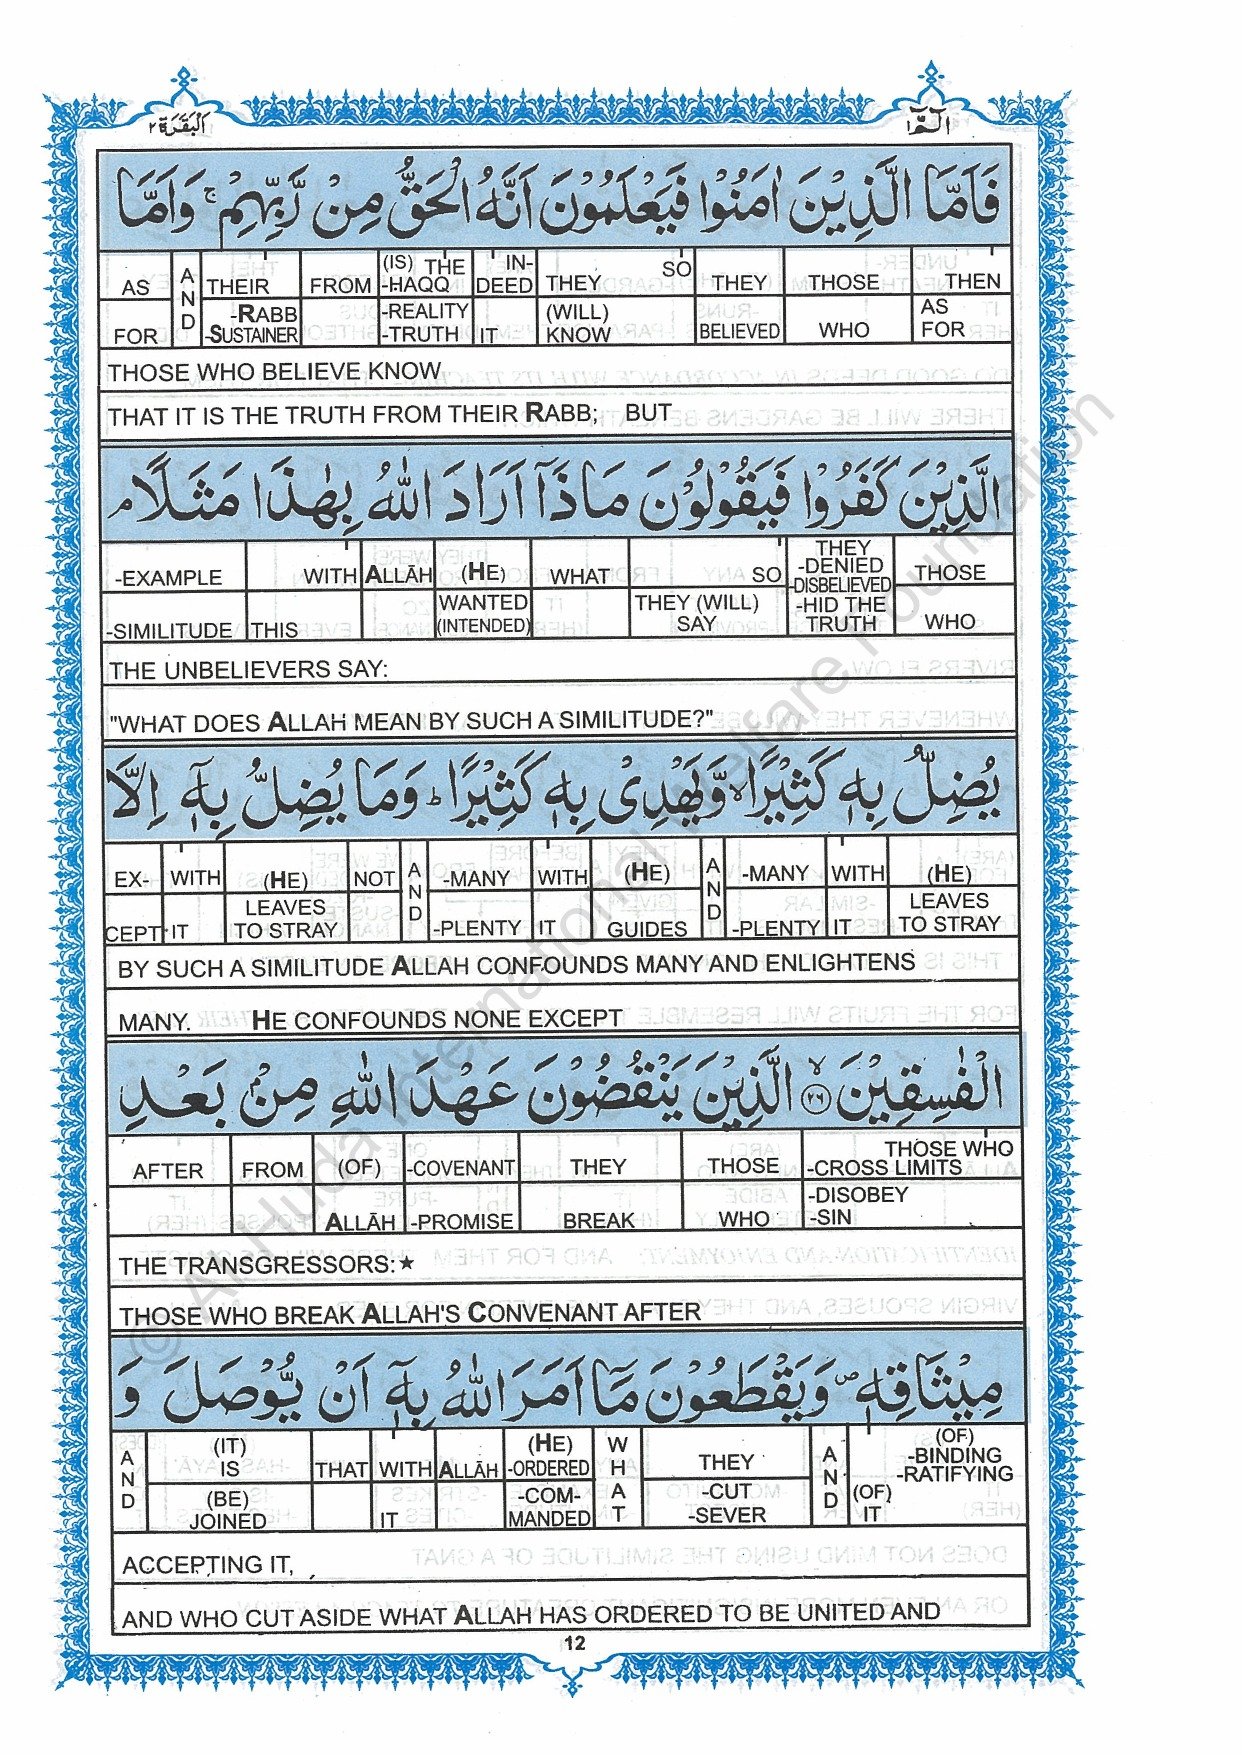 البقرة ٢
الٓمّٓ ١
فَاَمَّا الَّذِيْنَ اٰمَنُوْا فَيَعْلَمُوْنَ اَنَّهُ الْحَقُّ مِنْ رَّبِّهِمْ ۚ وَاَمَّا
AS FOR | AND | THEIR -RABB -SUSTAINER | FROM | (IS) THE -HAQQ -REALITY -TRUTH | IN-DEED IT | SO THEY (WILL) KNOW | THEY BELIEVED | THOSE WHO | THEN AS FOR
THOSE WHO BELIEVE KNOW
THAT IT IS THE TRUTH FROM THEIR RABB; BUT
الَّذِيْنَ كَفَرُوْا فَيَقُوْلُوْنَ مَاذَآ اَرَادَ اللّٰهُ بِهٰذَا مَثَلًا ۘ
-EXAMPLE -SIMILITUDE | WITH THIS | ALLĀH | (HE) WANTED (INTENDED) | WHAT | SO THEY (WILL) SAY | THEY -DENIED -DISBELIEVED -HID THE TRUTH | THOSE WHO
THE UNBELIEVERS SAY:
"WHAT DOES ALLAH MEAN BY SUCH A SIMILITUDE?"
يُضِلُّ بِهٖ كَثِيْرًا ۙ وَّيَهْدِيْ بِهٖ كَثِيْرًا ؕ وَمَا يُضِلُّ بِهٖٓ اِلَّا
EX-CEPT | WITH IT | (HE) LEAVES TO STRAY | NOT | AND | -MANY -PLENTY | WITH IT | (HE) GUIDES | AND | -MANY -PLENTY | WITH IT | (HE) LEAVES TO STRAY
BY SUCH A SIMILITUDE ALLAH CONFOUNDS MANY AND ENLIGHTENS
MANY. HE CONFOUNDS NONE EXCEPT
الْفٰسِقِيْنَ ۙ﴿٢٦﴾ الَّذِيْنَ يَنْقُضُوْنَ عَهْدَ اللّٰهِ مِنْۢ بَعْدِ
AFTER | FROM | (OF) ALLĀH | -COVENANT -PROMISE | THEY BREAK | THOSE WHO | THOSE WHO -CROSS LIMITS -DISOBEY -SIN
THE TRANSGRESSORS:★
THOSE WHO BREAK ALLAH'S CONVENANT AFTER
مِيْثَاقِهٖ ۪ وَيَقْطَعُوْنَ مَآ اَمَرَ اللّٰهُ بِهٖٓ اَنْ يُّوْصَلَ وَ
AND | (IT) IS (BE) JOINED | THAT | WITH IT | ALLĀH | (HE) -ORDERED -COM-MANDED | WHAT | THEY -CUT -SEVER | AND | (OF) IT | (OF) -BINDING -RATIFYING
ACCEPTING IT,
AND WHO CUT ASIDE WHAT ALLAH HAS ORDERED TO BE UNITED AND
12
© Al Huda International Welfare Foundation